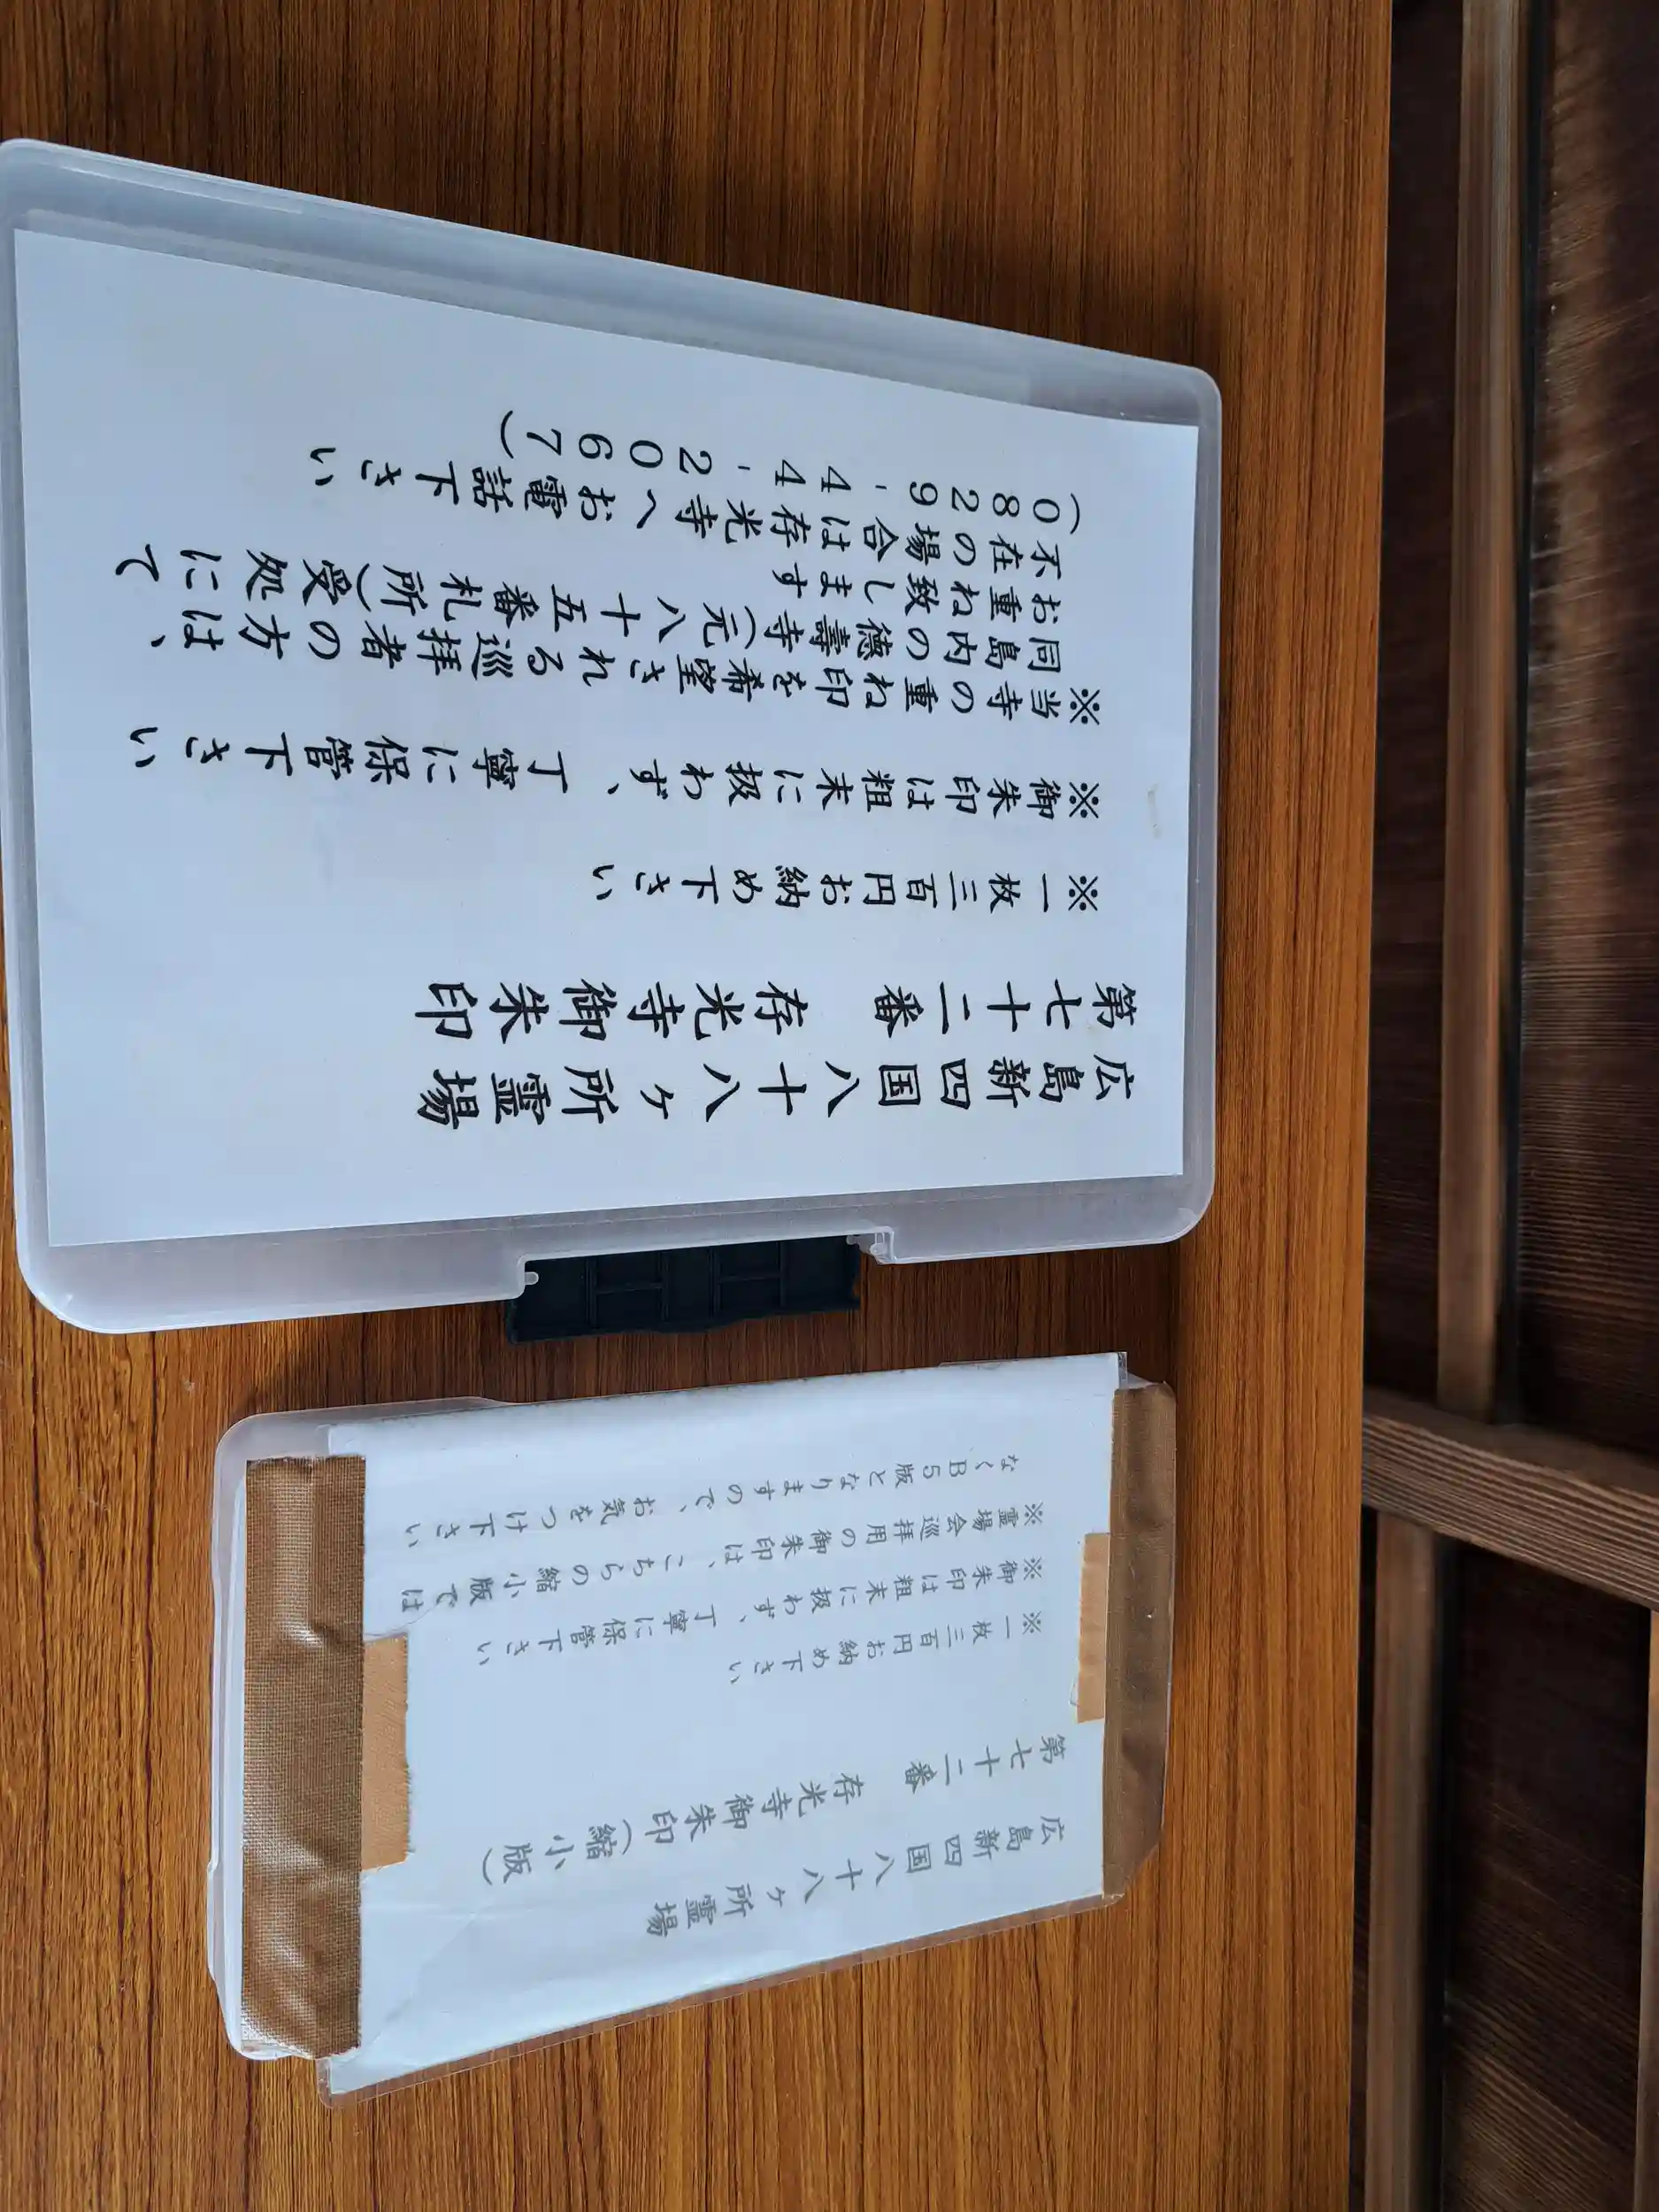 広島新四国八十八ヶ所霊場
第七十二番　存光寺御朱印
※一枚三百円お納め下さい
※御朱印は粗末に扱わず、丁寧に保管下さい
※当寺の重ね印を希望される巡拝者の方は、
同島内の徳壽寺(元八十五番札所)受処にて
お重ね致します
不在の場合は存光寺へお電話下さい
(0829-44-2067)
広島新四国八十八ヶ所霊場
第七十二番　存光寺御朱印(縮小版)
※一枚三百円お納め下さい
※御朱印は粗末に扱わず、丁寧に保管下さい
※霊場会巡拝用の御朱印は、こちらの縮小版では
なくB5版となりますので、お気をつけ下さい